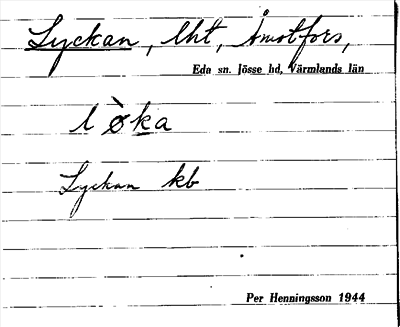 Lyckan, lht, Åmotfors,
Eda sn. Jösse hd, Värmlands län
l ø̀ka
Lyckan kb
Per Henningsson 1944